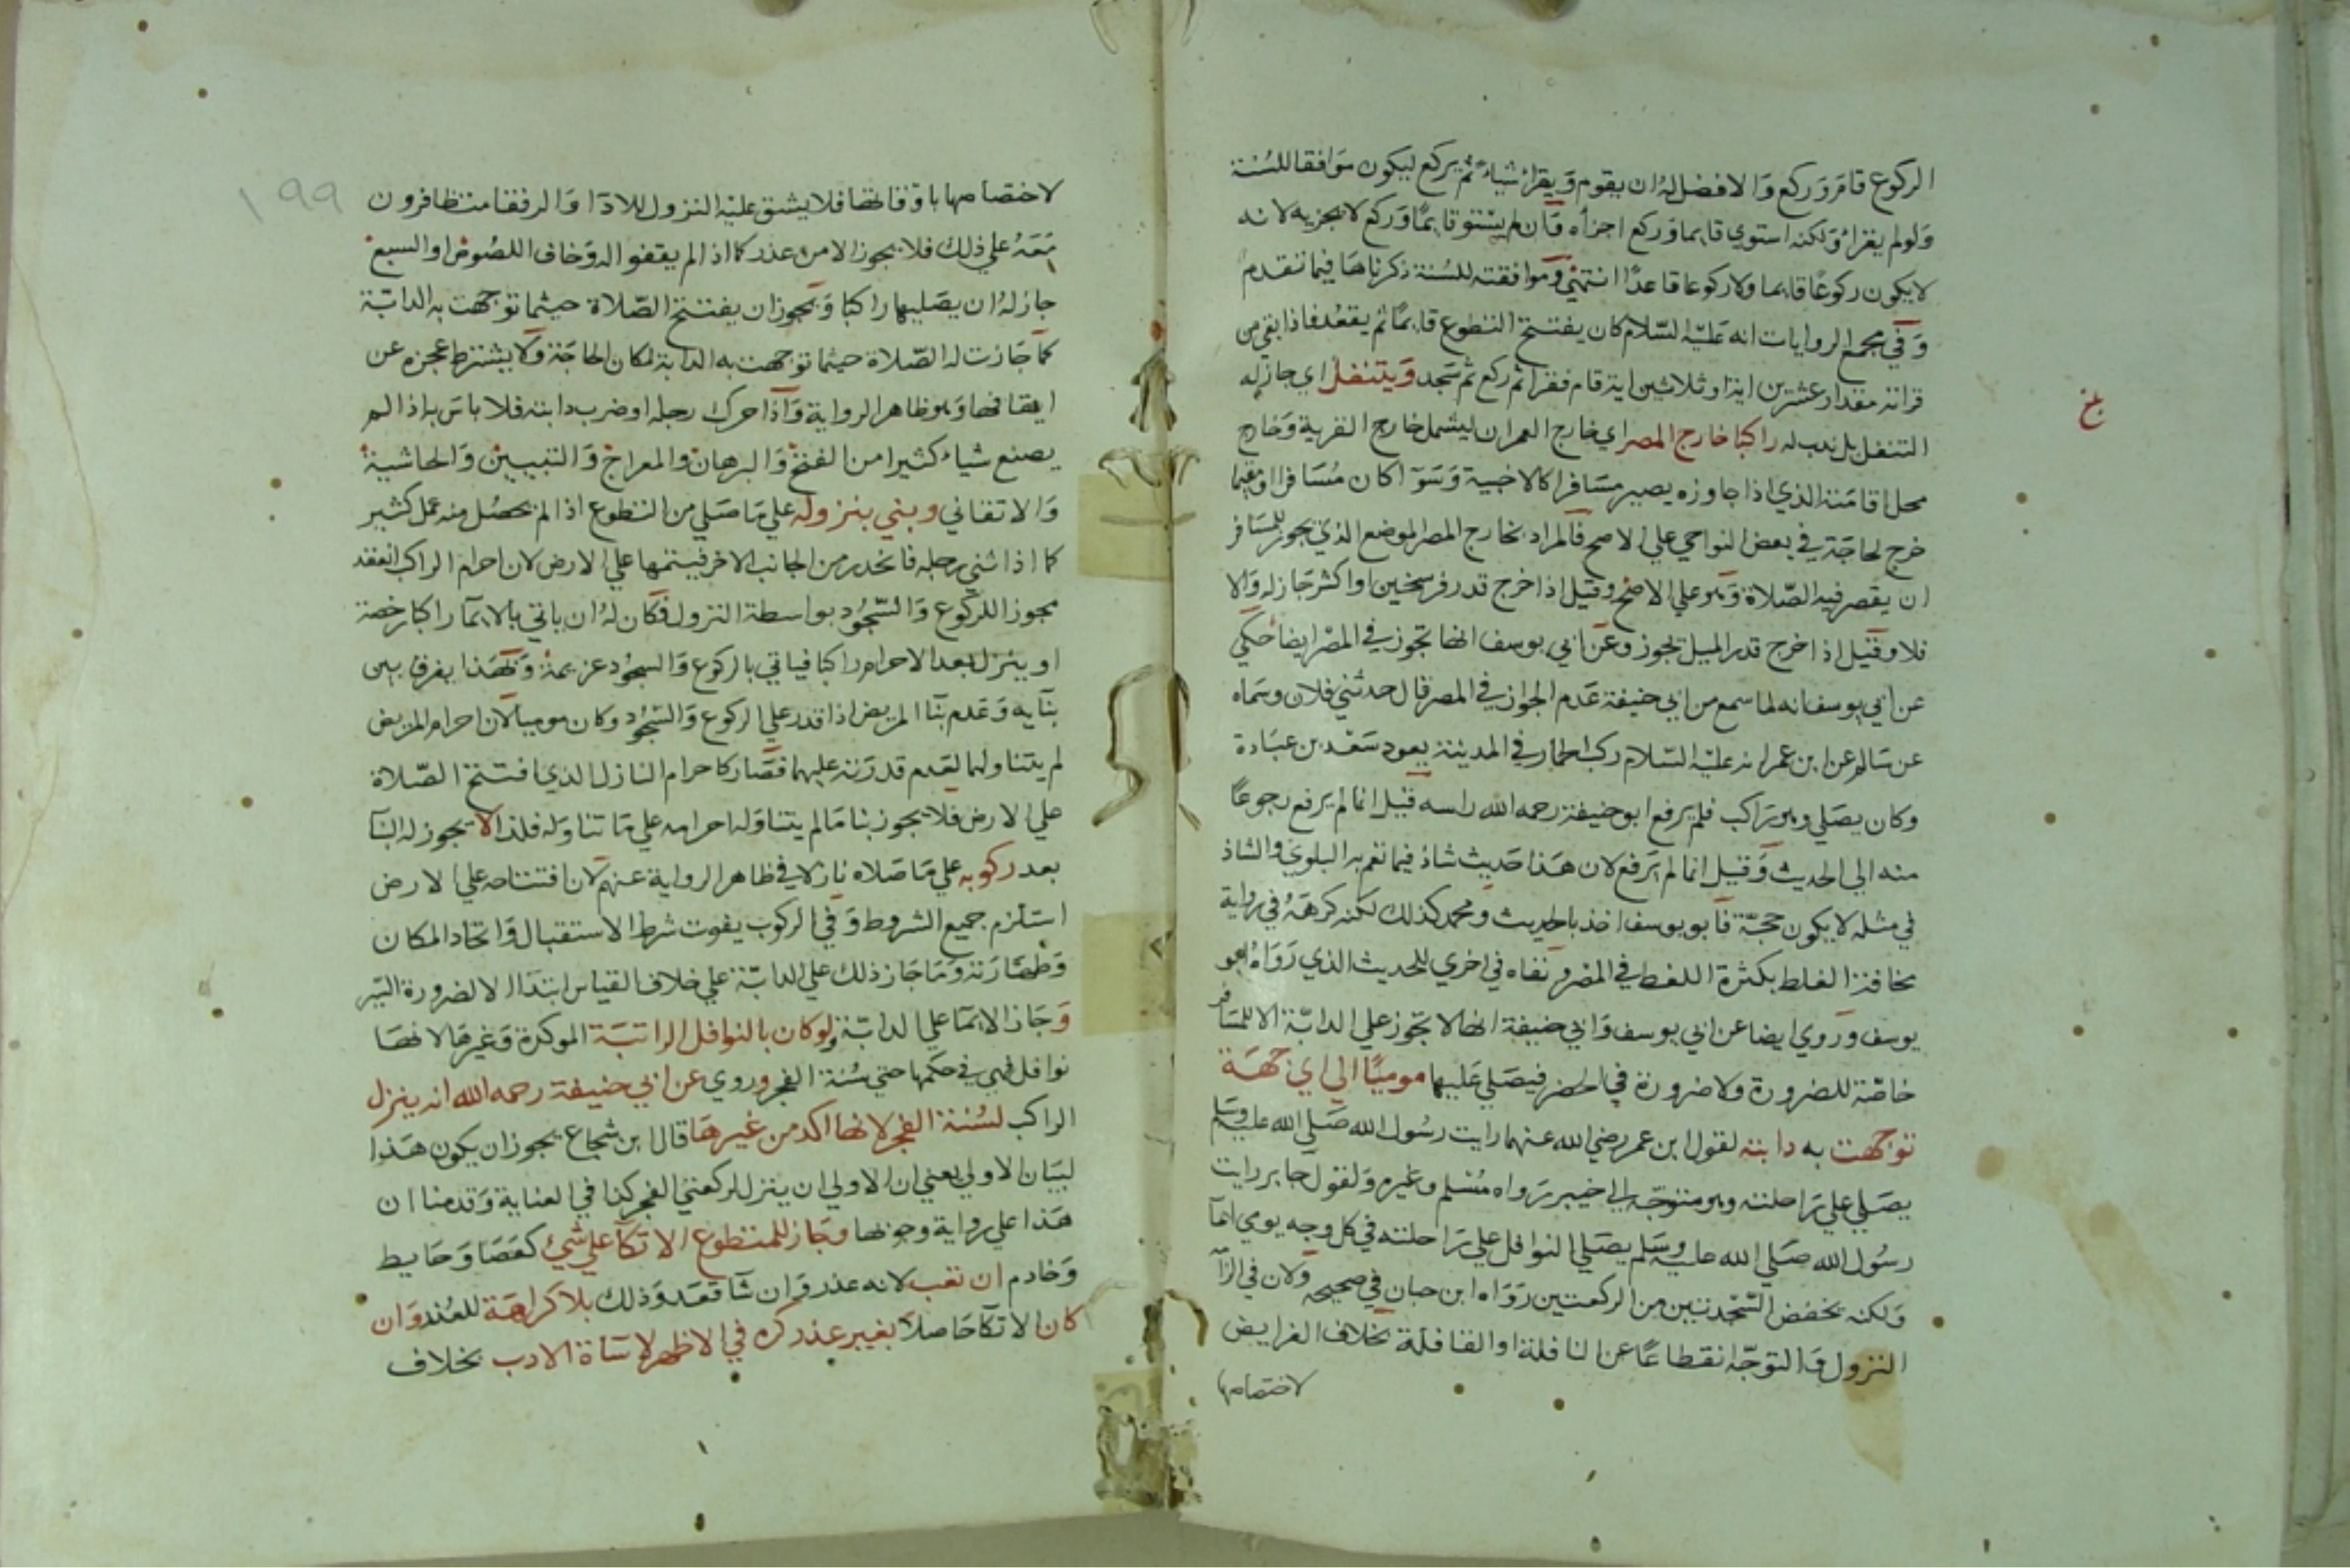 الركوع قام وركع والافضل له ان يقوم ويقرا شياء ثم يركع ليكون موافقا للسنة
ولو لم يقراء ولكنه استوي قايما وركع اجزأه فان لم يستو قايما وركع لا يجزيه لانه
لا يكون ركوعا قايما ولا ركوعا قاعدا انتهي وموافقته للسنة ذكرناها فيما تقدم
وفي مجمع الروايات انه عليه السلام كان يفتتح التطوع قايما ثم يقعد فاذا بقي من
قرانه مقدار عشرين اية او ثلاثين اية قام فقرا ثم ركع ثم سجد ويتنفل اي جاز له
التنفل بل ندب له راكبا خارج المصر اي خارج العمران ليشمل خارج القرية وخارج
بلغ
محل اقامته الذي اذا جاوزه يصير مسافرا كالاخبية وسوآ كان مسافرا او مقيما
خرج لحاجة في بعض النواحي علي الاصح فالمراد بخارج المصر الموضع الذي يجوز للمسافر
ان يقصر فيه الصلاة وهو علي الاصح وقيل اذا خرج قدر فرسخين او اكثر جاز له والا
فلا وقيل اذا خرج قدر الميل يجوز وعن ابي يوسف انها تجوز في المصر ايضا حكي
عن ابي يوسف انه لما سمع من ابي حنيفة عدم الجواز في المصر قال حدثني فلان وسماه
عن سالم عن ابن عمر انه عليه السلام ركب الحمار في المدينة يعود سعد بن عبادة
وكان يصلي وهو راكب فلم يرفع ابو حنيفة رحمه الله راسه قيل انما لم يرفع رجوعا
منه الي الحديث وقيل انما لم يرفع لان هذا حديث شاذ فيما تعم به البلوي والشاذ
في مثله لا يكون حجة فابو يوسف اخذ بالحديث ومحمد كذلك لكنه كرهه في رواية
مخافة الغلط بكثرة اللغط في المصر ونفاه في اخري للحديث الذي رواه ابو
يوسف وروي ايضا عن ابي يوسف وابي حنيفة انها لا تجوز علي الدابة الا للمسافر
خاصة للضرورة ولا ضرورة في الحضر فيصلي عليها موميا الي اي جهة
توجهت به دابته لقول ابن عمر رضي الله عنهما رايت رسول الله صلي الله عليه وسلم
يصلي علي راحلته وهو متوجه الي خيبر رواه مسلم وغيره ولقول جابر رايت
رسول الله صلي الله عليه وسلم يصلي النوافل علي راحلته في كل وجه يومي ايمآ
ولكنه يخفض السجدتين من الركعتين رواه ابن حبان في صحيحه ولان في الزآ
النزول والتوجه انقطاعا عن النافلة او القافلة بخلاف الفرايض
لاختصاصها
١٩٩
لاختصاصها باوقاتها فلا يشق عليه النزول للادآ والرفقا متظافرون
معه علي ذلك فلا يجوز الا من عذر كما اذا لم يقفوا له وخاف اللصوص او السبع
جاز له ان يصليها راكبا ويجوز ان يفتتح الصلاة حيثما توجهت به الدابة
كما جازت له الصلاة حيثما توجهت به الدابة لمكان الحاجة ولا يشترط عجزه عن
ايقافها وهو ظاهر الرواية واذا حرك رجله او ضرب دابته فلا باس به اذا لم
يصنع شياء كثيرا من الفتح والبرهان والمعراج والتبيين والحاشية
والاتقاني وبني بنزوله علي ما صلي من التطوع اذا لم يحصل منه عمل كثير
كما اذا ثني رجله فانحدر من الجانب الاخر فيتمها علي الارض لان احرام الراكب انعقد
مجوزا للركوع والسجود بواسطة النزول فكان له ان ياتي بالايمآ راكبا رخصة
او ينزل بعد الاحرام راكبا فياتي بالركوع والسجود عزيمة وبهذا يفرق بين
بنآيه وعدم بنآ المريض اذا قدر علي الركوع والسجود وكان موميا لان احرام المريض
لم يتناولهما لعدم قدرته عليهما فصار كاحرام النازل الذي افتتح الصلاة
علي الارض فلا يجوز بنا ما لم يتناوله احرامه علي ما تناوله فلذا لا يجوز له البنآ
بعد ركوبه علي ما صلاه نازلا في ظاهر الرواية عنهم لان افتتاحه علي الارض
استلزم جميع الشروط وفي الركوب يفوت شرط الاستقبال واتحاد المكان
وطهارته وما جاز ذلك علي الدابة علي خلاف القياس ابتدآ الا لضرورة السير
وجاز الايمآ علي الدابة ولو كان بالنوافل الراتبة الموكدة وغيرها لانها
نوافل فهي في حكمها حتي سنة الفجر وروي عن ابي حنيفة رحمه الله انه ينزل
الراكب لسنة الفجر لانها اكد من غيرها قال ابن شجاع يجوز ان يكون هذا
لبيان الاولي يعني ان الاولي ان ينزل لركعتي الفجر كذا في العناية وقدمنا ان
هذا علي رواية وجوبها وجاز للمتطوع الاتكآ علي شيئ كعصا وحايط
وخادم ان تعب لانه عذر وان شآ قعد وذلك بلا كراهة للعذر وان
كان الاتكآ حاصلا بغير عذر كره في الاظهر لاسآة الادب بخلاف